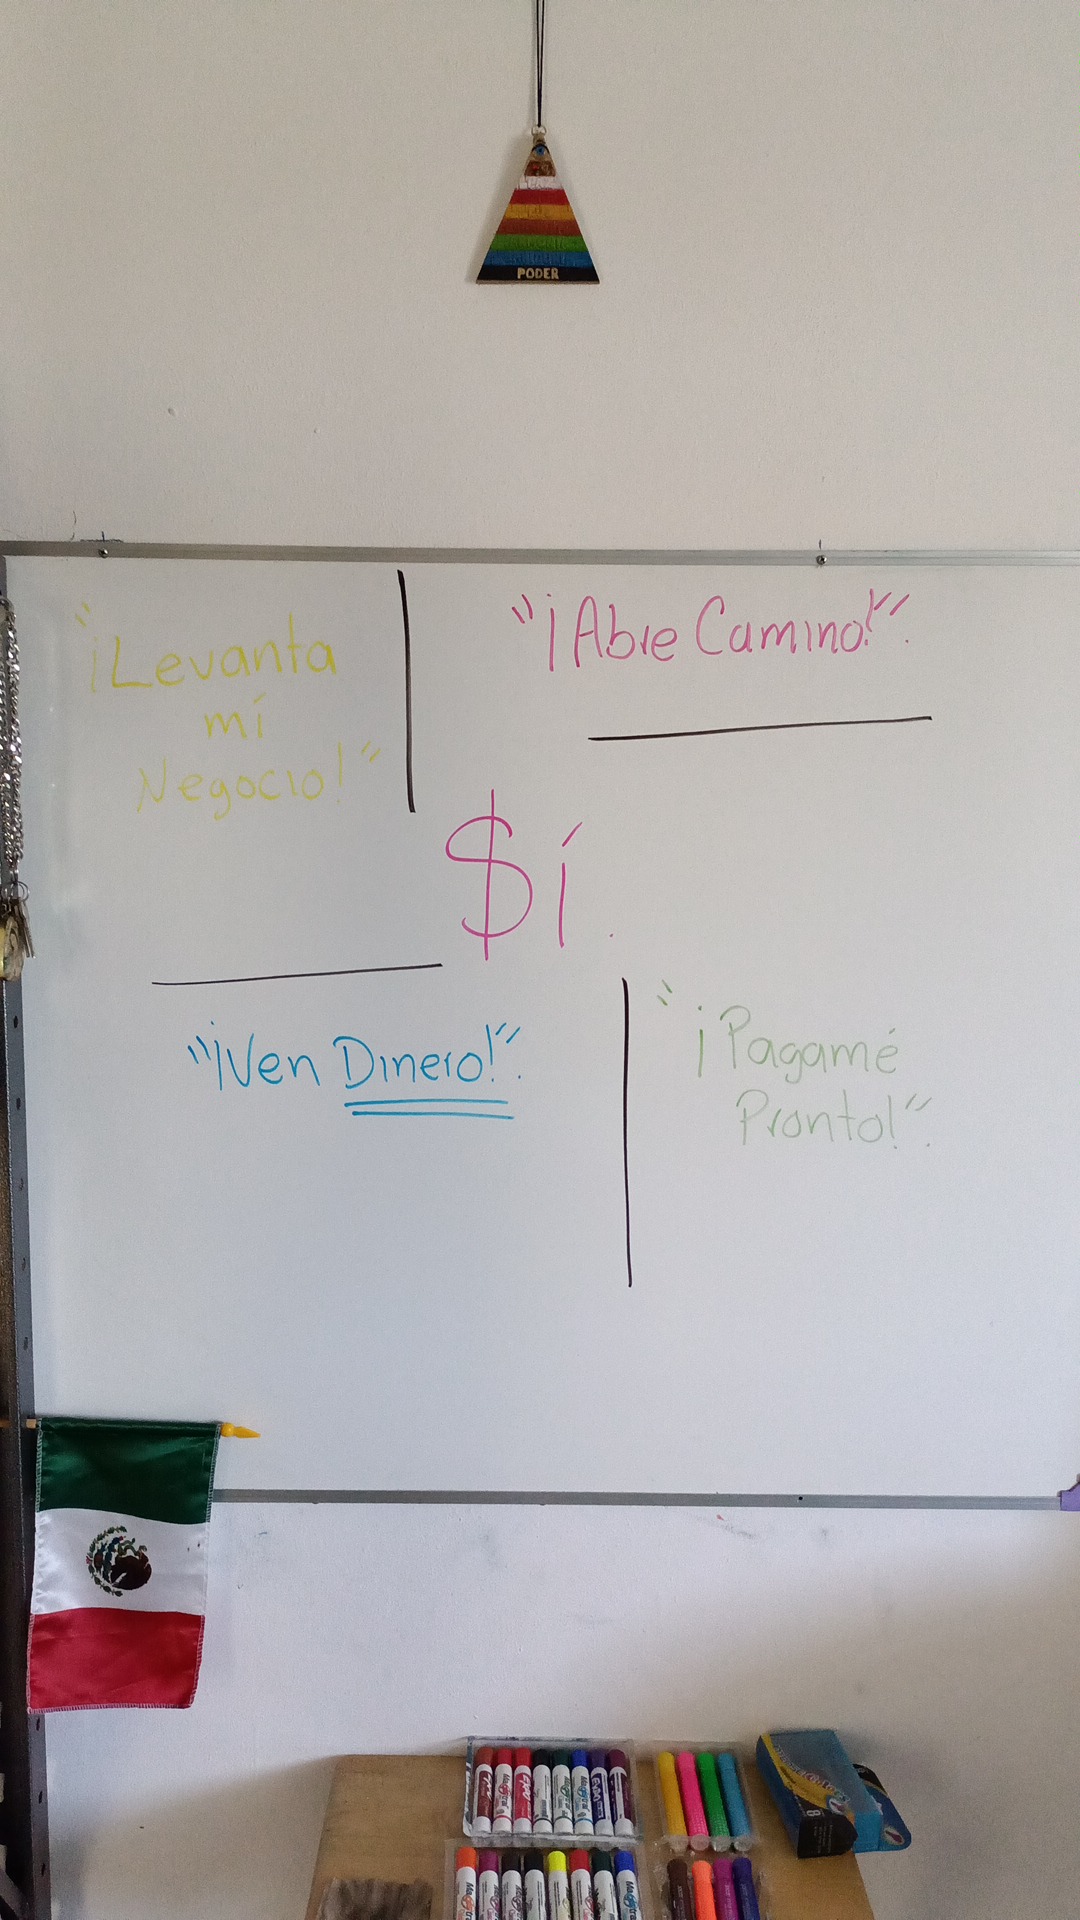 PODER
"¡Levanta
mí
Negocio!"
"¡Abre Camino!".
$í.
"¡Ven Dinero!".
"¡Pagamé
Pronto!".